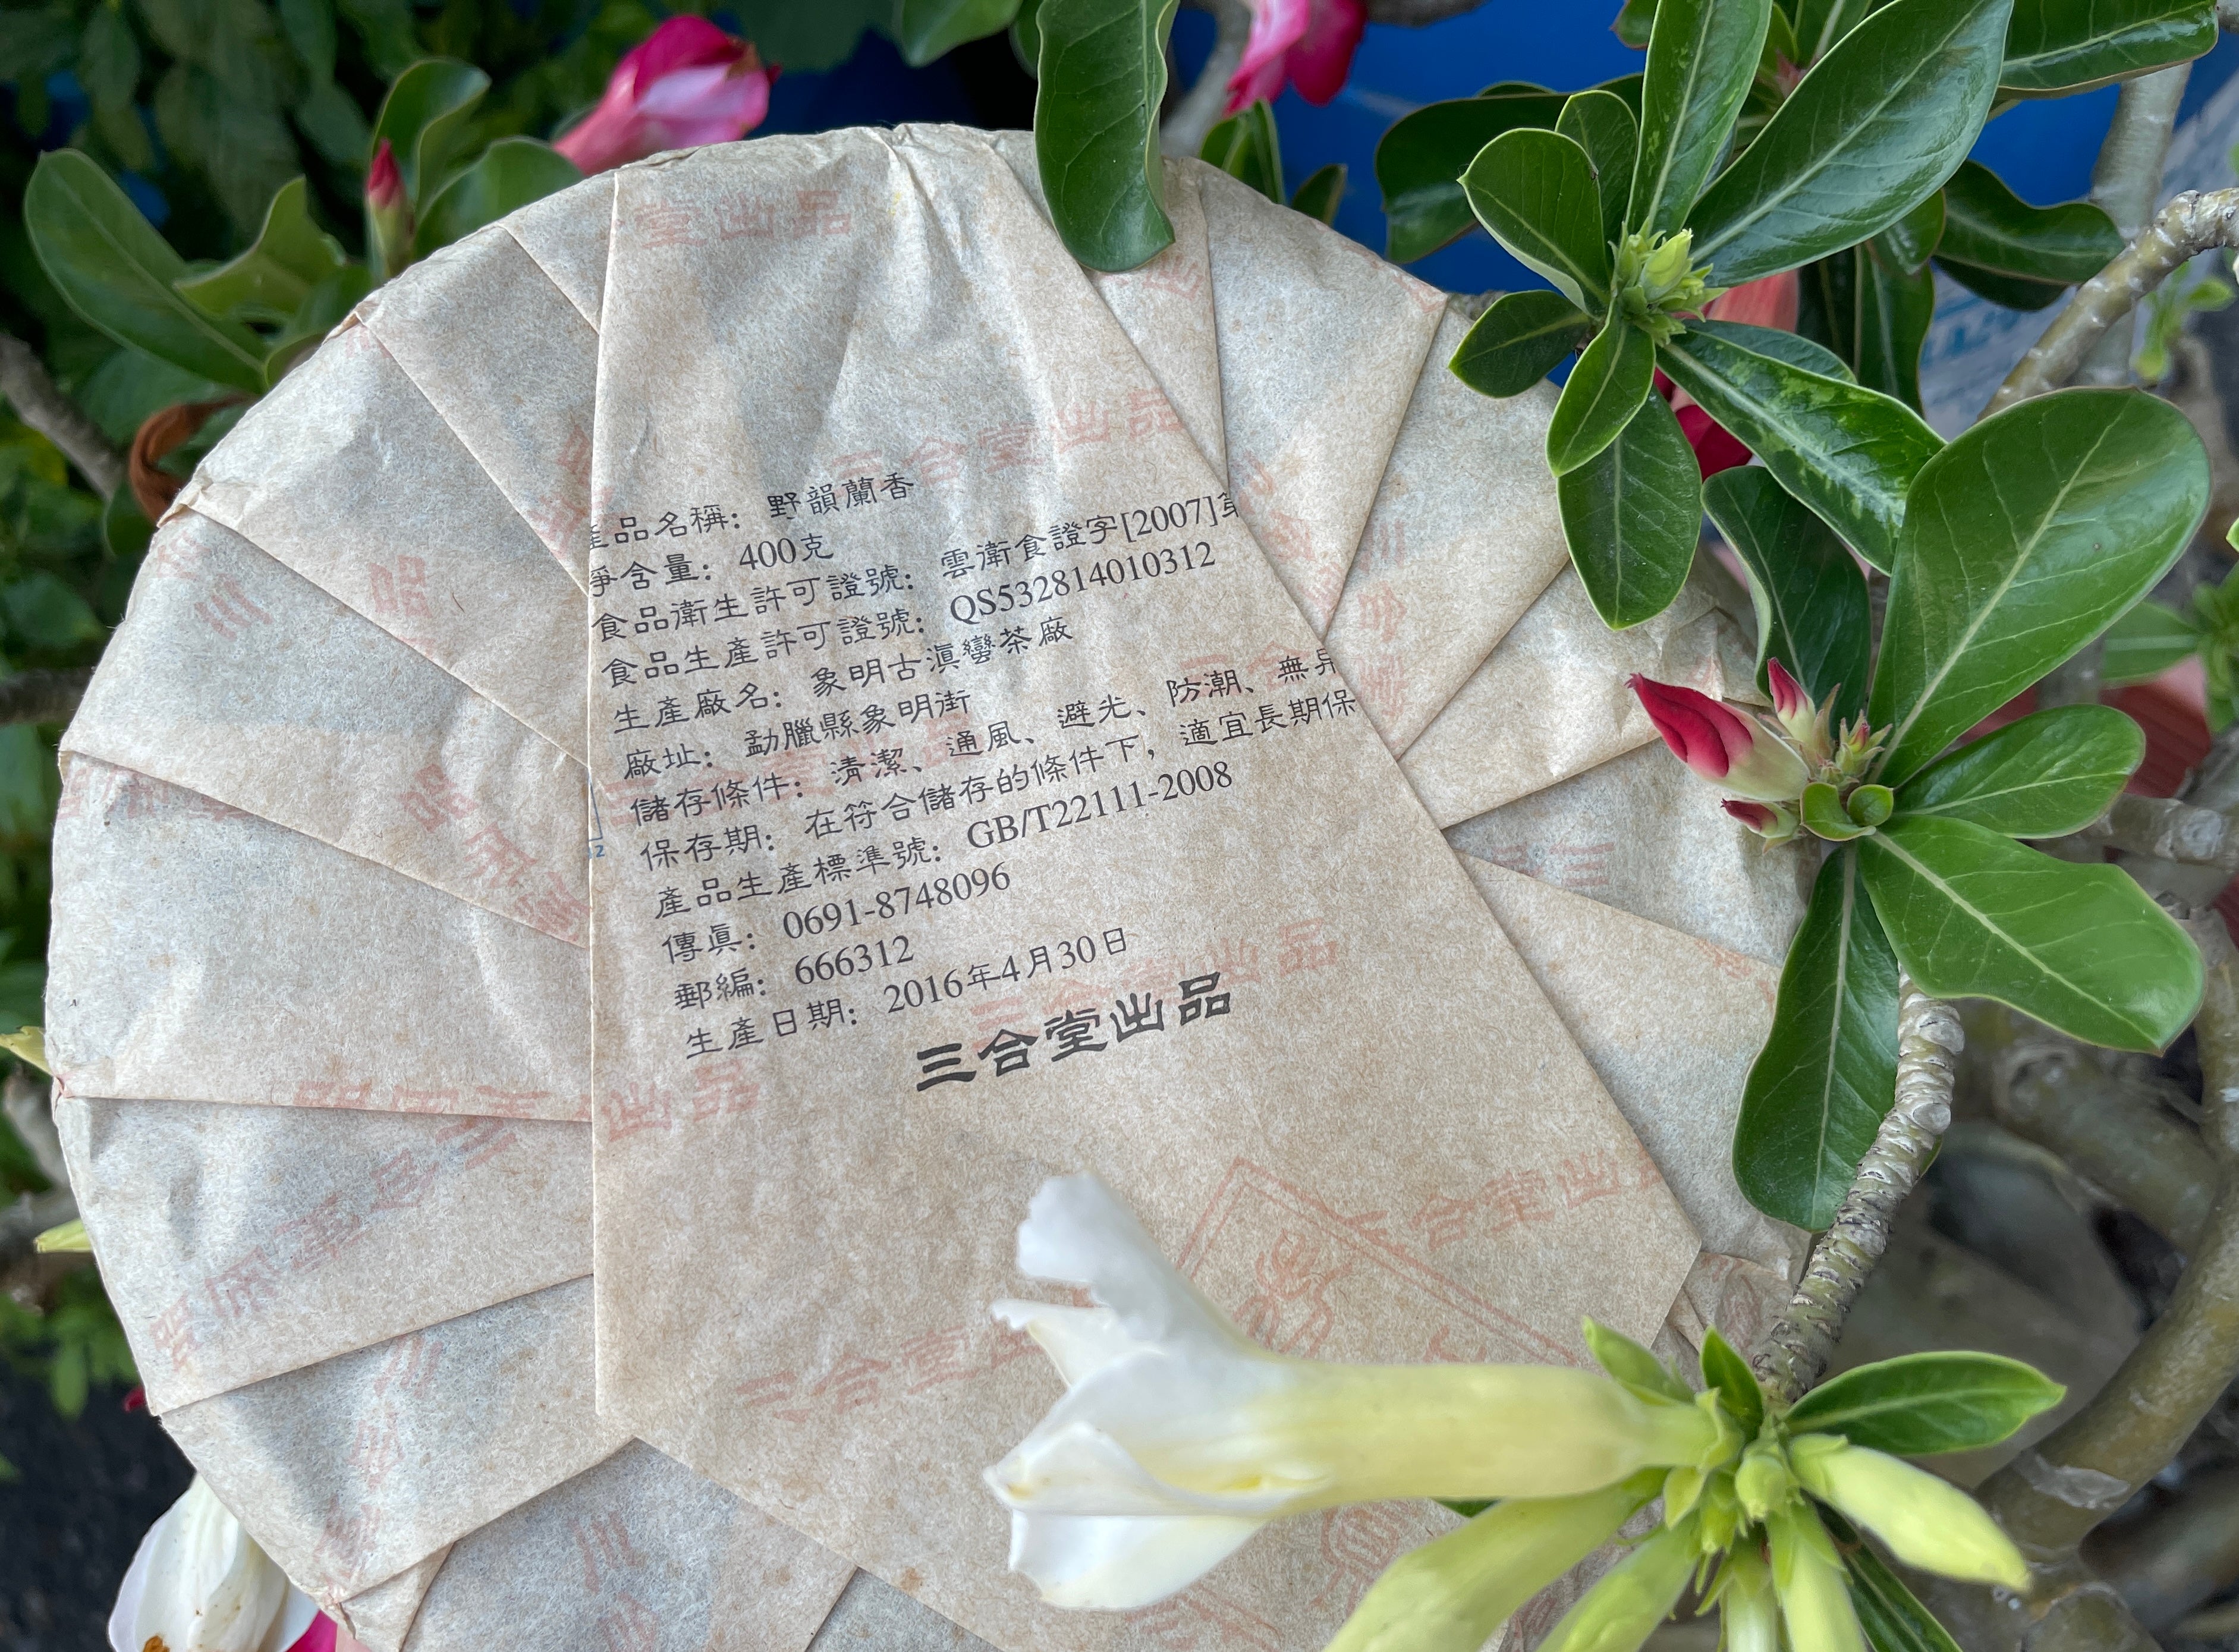 產品名稱：野韻蘭香
淨含量：400克
食品衛生許可證號：雲衛食證字[2007]第
食品生產許可證號：QS532814010312
生產廠名：象明古滇蠻茶廠
廠址：勐臘縣象明街
儲存條件：清潔、通風、避光、防潮、無異
保存期：在符合儲存的條件下，適宜長期保
產品生產標準號：GB/T22111-2008
傳真：0691-8748096
郵編：666312
生產日期：2016年4月30日
三合堂出品
堂出品
三合堂出品
三合堂出品
三合堂出